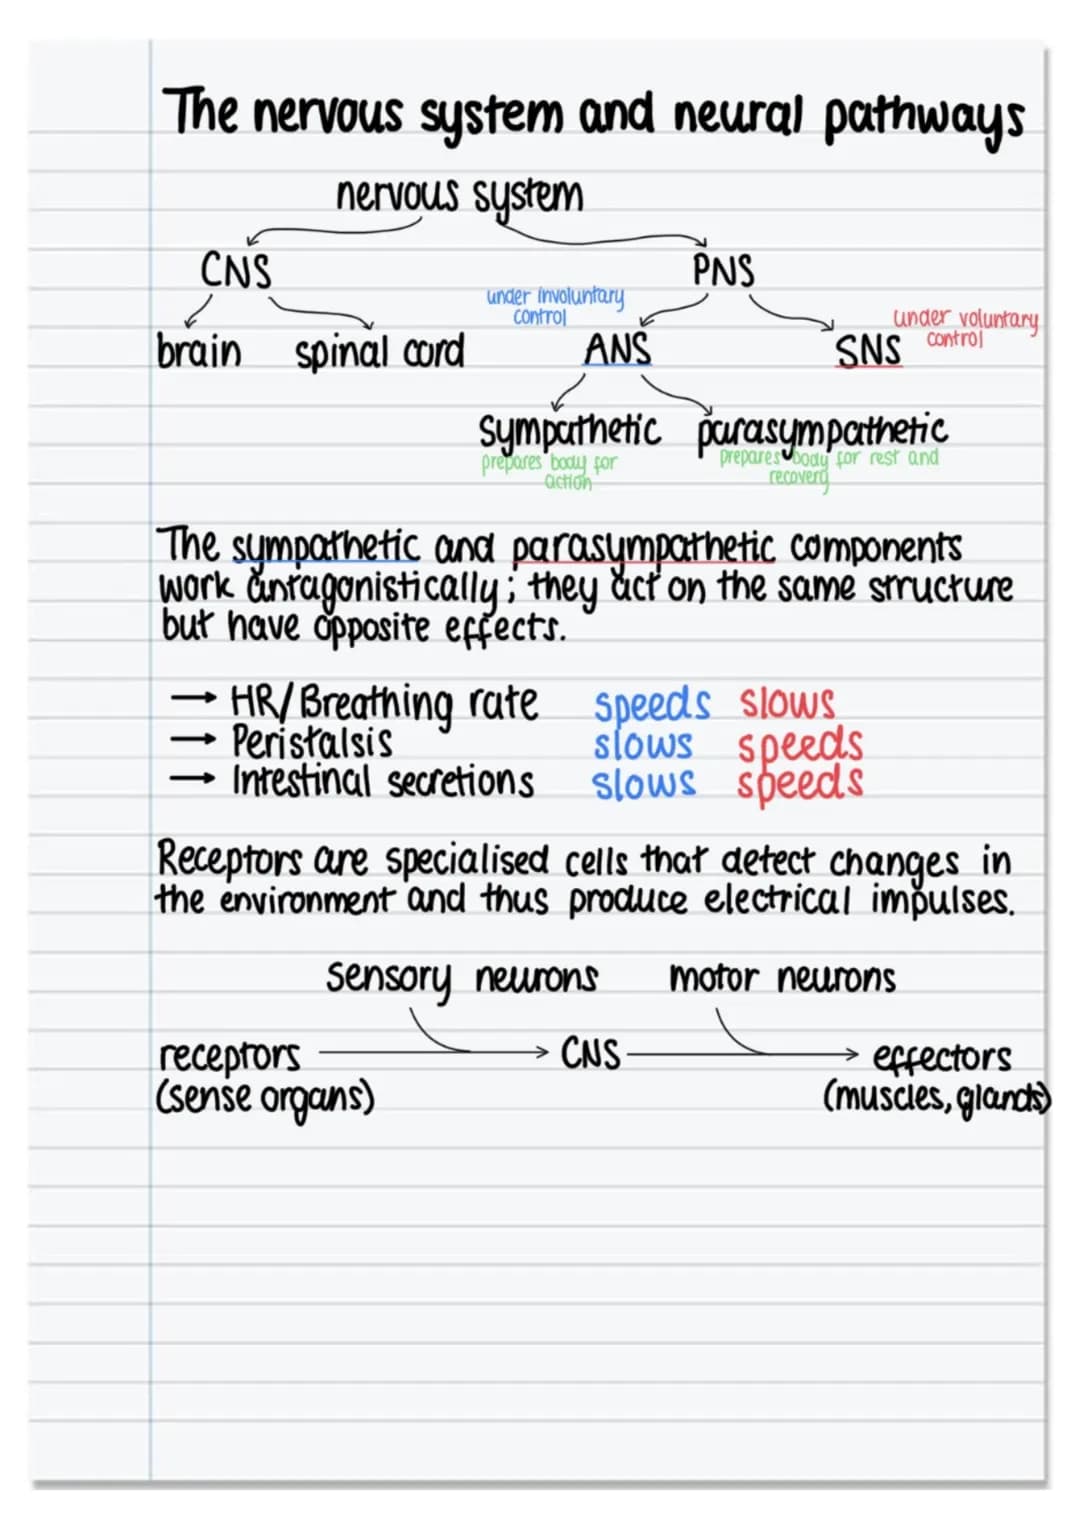 The nervous system and neural pathways
nervous system
CNS PNS
under involuntary
control
under voluntary
control
brain spinal cord ANS SNS
sympathetic parasympathetic
prepares body for
action
prepares body for rest and
recovery
The sympathetic and parasympathetic components
work antagonistically; they act on the same structure
but have opposite effects.
→ HR/Breathing rate speeds slows
→ Peristalsis slows speeds
→ Intestinal secretions slows speeds
Receptors are specialised cells that detect changes in
the environment and thus produce electrical impulses.
sensory neurons motor neurons
receptors → CNS → effectors
(sense organs) (muscles, glands)